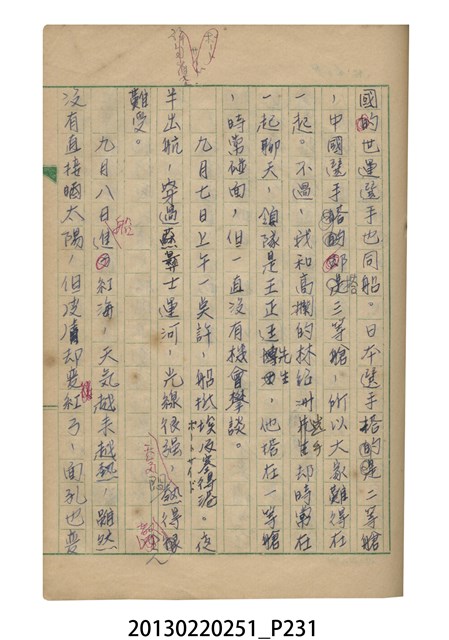 國的世運選手也同船。日本選手搭的是二等艙
，中國選手搭的都是三等艙，所以大家難得在
一起。不過，我和高欄的林紹洲選手却時常在
一起聊天，領隊是王正廷先生，他搭在一等艙
，時常碰面，但一直沒有機會攀談。
九月七日上午一點許，船抵埃及塞得港。夜
半出航，穿過蘇彝士運河，光線很強，熱得很
難受。
九月八日進紅海，天氣越來越熱，雖然
沒有直接晒太陽，但皮膚却變紅了，面孔也變
20130220251_P231